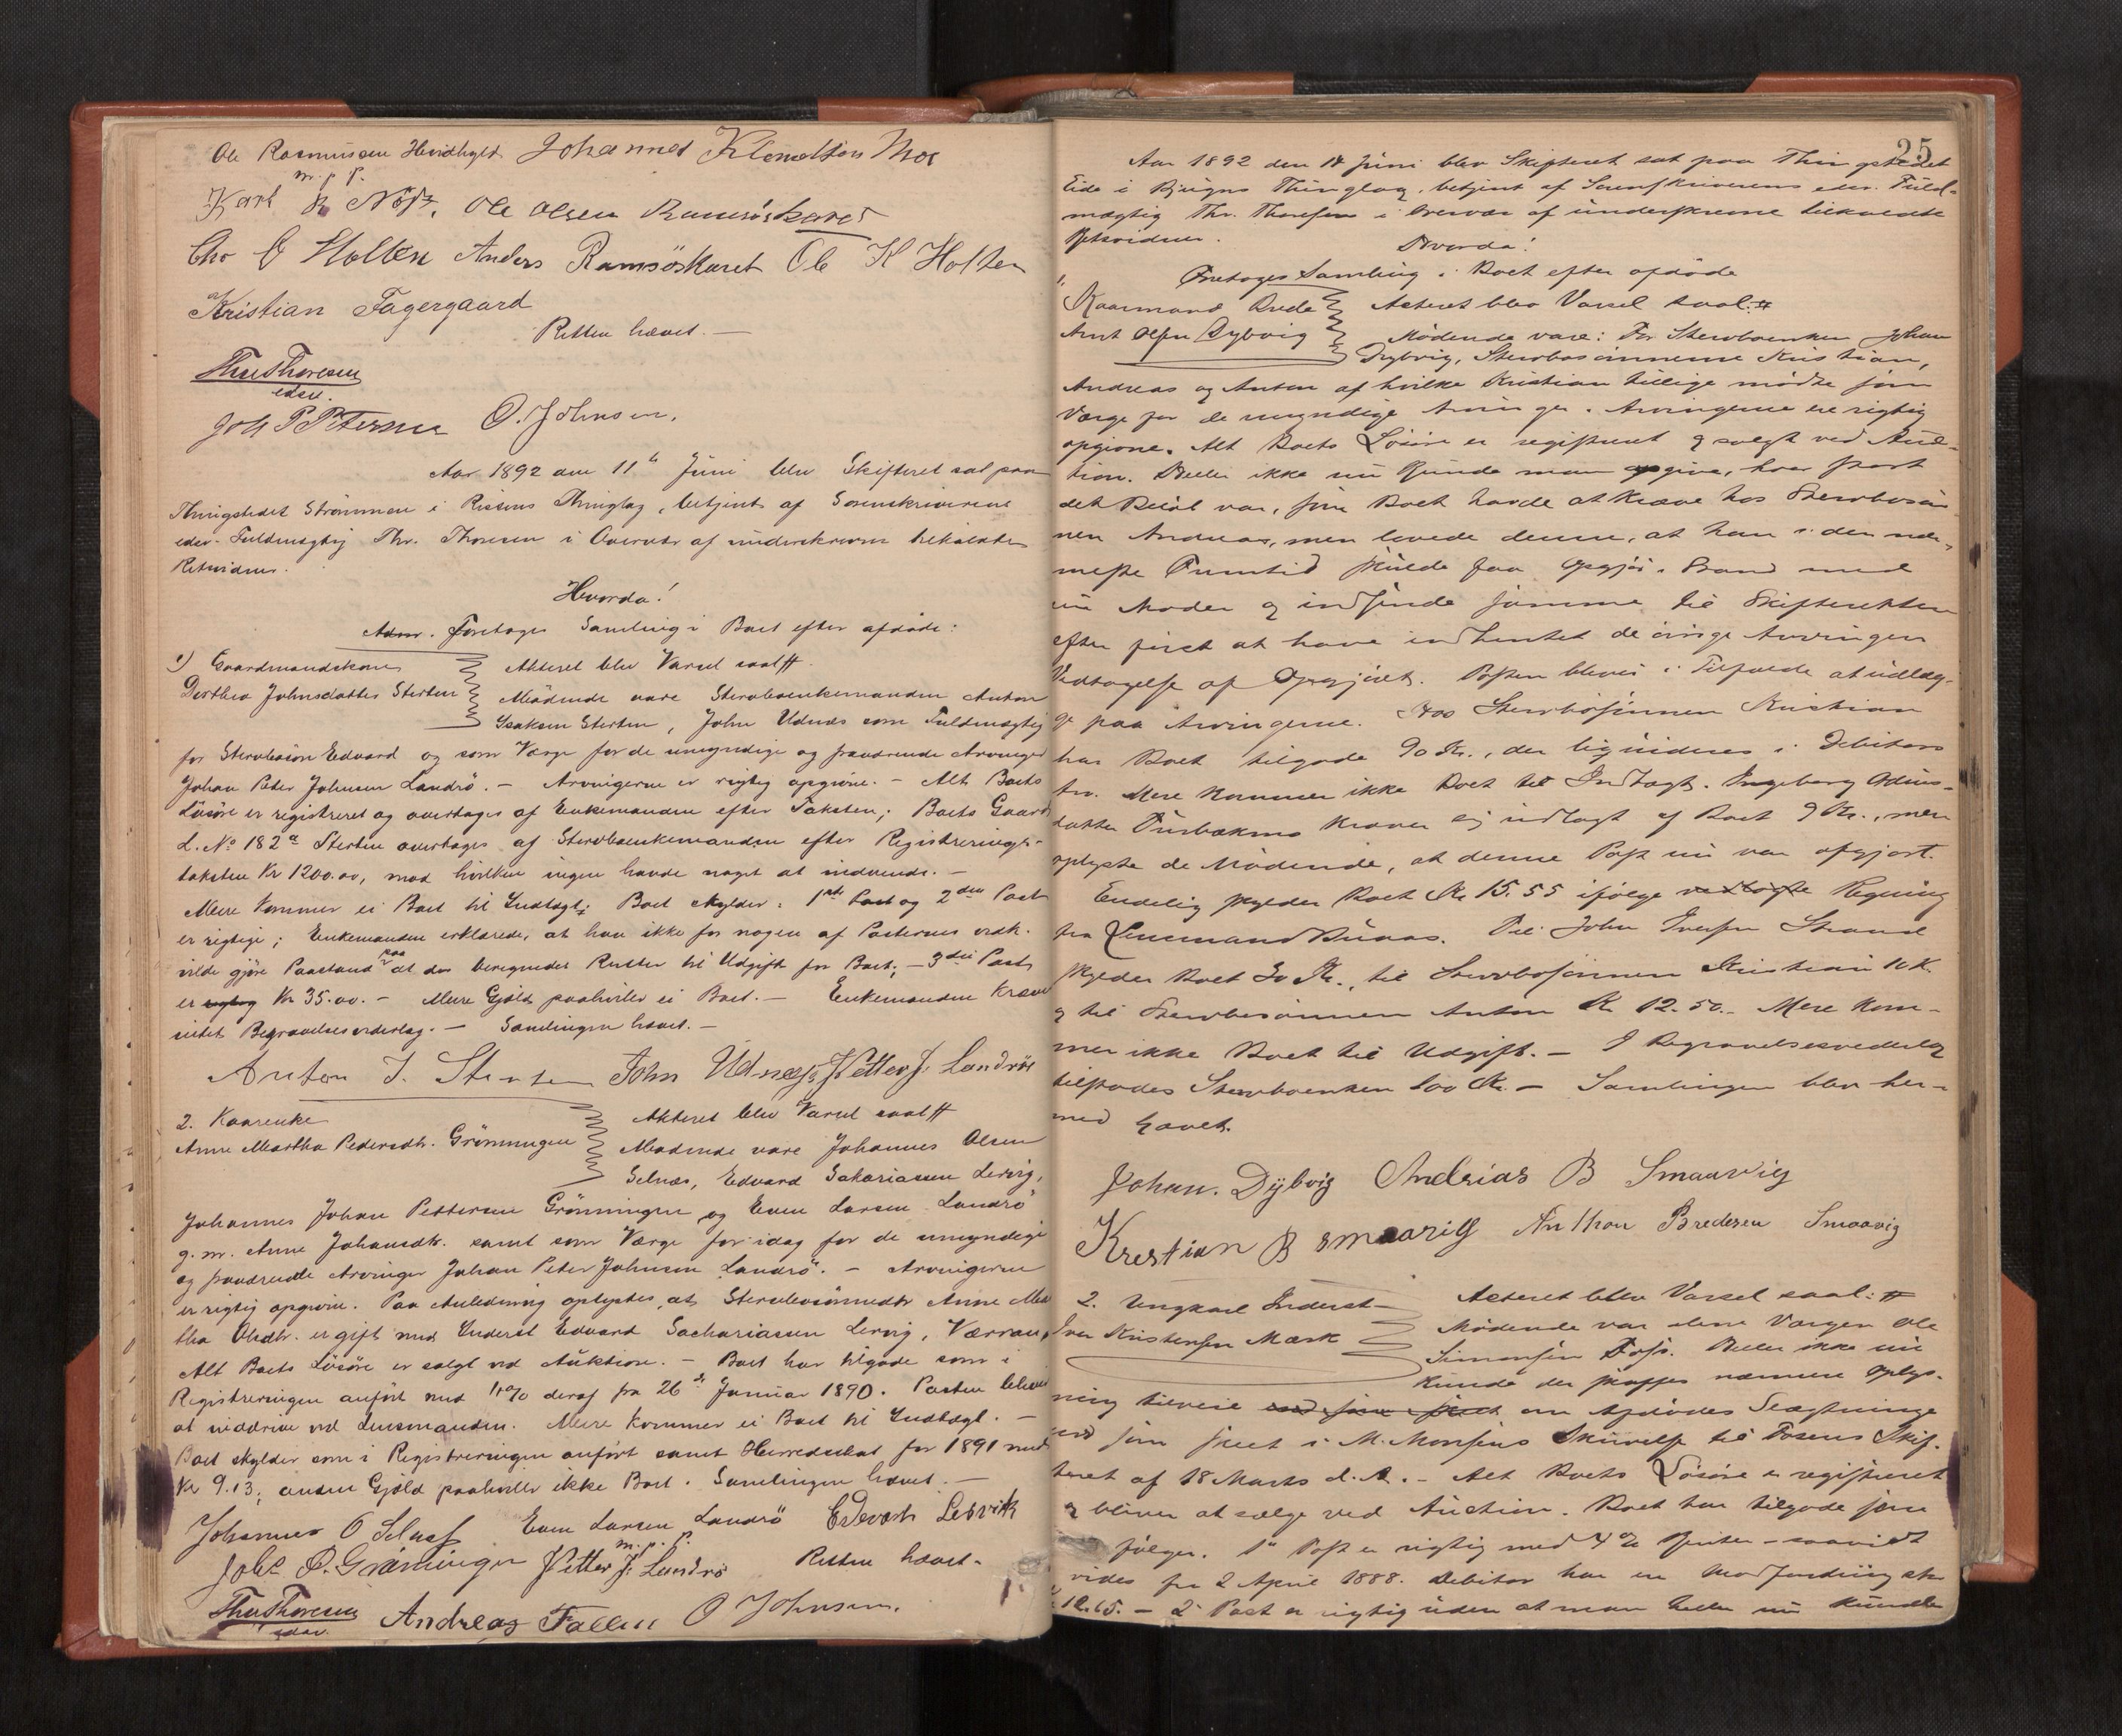 Ole Rasmussen Hvidhyld. Johannes Klemetsen Moe
m. p. P.
Karl Nøst. Ole Olsen Ramsöskaret
Chr O Holten Anders Ramsöskaret Ole K Holten
Kristian Fagergaard
Retten hævet. —
Thr Thoresen
edsv.
Joh P Petersen O. Johnsen.
Aar 1892 den 11te Juni blev Skifteret sat paa
Thingstedet Strømmen i Rissens Thinglag, betjent af Sorenskriverens
edsv. Fuldmægtig Thr. Thoresen i Overvær af underskrevne tilkaldte
Retsvidner.
Hvorda!
Foretoges Samling i Boet efter afdøde:
1) Gaardmandskone
Dorthea Johnsdatter Sterten
Akteret blev Varsel saal #.
Mødende vare Stervboenkemanden Anton
Isaksen Sterten, John Udnæs som Fuldmægtig
for Stervbosøn Edvard og som Værge for de umyndige og fraværende Arvinger
Johan Peter Johnsen Landrø. — Arvingerne er rigtig opgivne. — Alt Boets
Løsøre er registreret og overtages af Enkemanden efter Taksten; Boets Gaard
L. No 182a Sterten overtages af Stervboenkemanden efter Registrerings-
taksten Kr 1200.00, mod hvilken ingen havde noget at indvende. —
Mere kommer ei Boet til Indtægt; Boet skylder: 1ste Post og 2den Post
er rigtige; Enkemanden erklærede, at han ikke for nogen af Posternes vedk.
vilde gjøre Paastand paa at der beregnedes Renter til Udgift for Boet; — 3die Post
er rigtig Kr 35.00. — Mere Gjæld paahviler ei Boet. — Enkemanden kræver
intet Begravelsesvederlag. — Samlingen hævet. —
Anton I. Sterten John Udnæss Petter J. Landrös
2. Kaarenke
Anne Martha Pedersdtr. Grønningen
Akteret blev Varsel saal #
Mødende vare Johannes Olsen
Selnæs, Edvard Sakariassen Lervig,
Johannes Johan Pettersen Grønningen og Even Larsen Landrø
g. m. Anne Johansdtr. samt som Værge for idag for de umyndige
og fraværende Arvinger Johan Peter Johnsen Landrø. — Arvingerne
er rigtig opgivne. Paa Anledning oplystes, at Stervbosønnedtr Anne Mar
tha Olsdtr. er gift med Inderst Edvard Sachariassen Lervig, Værran,
Alt Boets Løsøre er solgt ved Auktion. — Boet har tilgode som i
Registreringen anført med 4% deraf fra 26de Januar 1890. Posten bliver
at inddrive ved Lensmanden. Mere kommer ei Boet til Indtægt. —
Boet skylder som i Registreringen anført samt Herredsskat for 1891 med
Kr 9.13; anden Gjæld paahviler ikke Boet. Samlingen hævet. —
Johannes O Selnæs Even Larsen Landrö Edevart Lervik
m. p. P.
Johs P. Gröninger Petter J. Landrö Retten hævet.
Thr Thoresen Andreas Fallin O Johnsen.
edsv.
25
Aar 1892 den 14 Juni blev Skifteret sat paa Thingstedet
Eide i Bjugns Thinglag, betjent af Sorenskriverens edsv. Fuld-
mægtig Thr. Thoresen i Overvær af underskrevne tilkaldte
Retsvidner.
Hvorda!
Foretoges Samling i Boet efter afdøde
1,
Kaarmand Brede
Arnt Olsen Dybvig
Acteret blev Varsel saal. #
Mødende vare: For Stervboenken Johan
Dybvig, Stervbosønnerne Kristian,
Andreas og Anton af hvilke Kristian tillige mødte som
Værge for de umyndige Arvinger. Arvingerne ere rigtig
opgivne. Alt Boets Løsøre er registreret og solgt ved Auc-
tion. Heller ikke nu kunde man opgive, hvor stort
det Beløb var, som Boet havde at kræve hos Stervbosøn
nen Andreas, men lovede denne, at han i den nær-
meste Fremtid skulde faa Opgjør istand med
sin Moder og indsende samme til Skifteretten
efter først at have indhentet de øvrige Arvingers
Vedtagelse af Opgjøret. Posten bliver i Tilfælde at udlæg-
ge paa Arvingerne. Hos Stervbosønnen Kristian
har Boet tilgode 90 Kr., der ligvideres i Debitors
Arv. Mere kommer ikke Boet til Indtægt. Ingeborg Odins-
datter Tinbakmo kræver sig udlagt af Boet 9 Kr., men
oplyste de Mødende, at denne Post nu var afgjort.
Endelig skylder Boet Kr 15.55 ifølge vedlagte Regning
fra Lensmand Buaas. Til John Iversen Strand
skylder Boet 30 Kr., til Stervbosønnen Kristian 10 K.
og til Stervbosønnen Anton Kr 12.50. — Mere kom-
mer ikke Boet til Udgift. — I Begravelsesvederlag
tilstodes Stervboenken 100 Kr. — Samlingen blev her-
med hævet.
Johan. Dÿbvig Andrias B Smaavig
Krestian B smaavig Anthon Bredesen Smaavig
2. Ungkarl Inderst
Iver Kristensen Mærk
Acteret blev Varsel saal: #
Mødende var alene Værgen Ole
Simonsen Foss. Heller ikke nu
kunde der skaffes nærmere Oplys-
ning tilveie om Afdødes Slægtninge
end som skeet i M. Monsens Skrivelse til Fosens Skif-
teret af 18 Marts d. A. — Alt Boets Løsøre er registreret
og bliver at sælge ved Auction. Boet har tilgode som
følger. 1ste Post er rigtig med 4% Renter — saavidt
vides fra 2 April 1888. Debitor har en Modfordring stor
12.65. — 2 Post er rigtig uden at man heller nu kunde